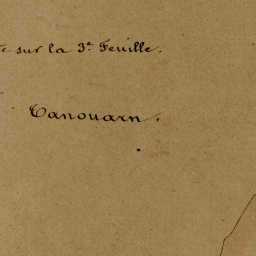 sur la 3e Feuille.
Tanouarn.